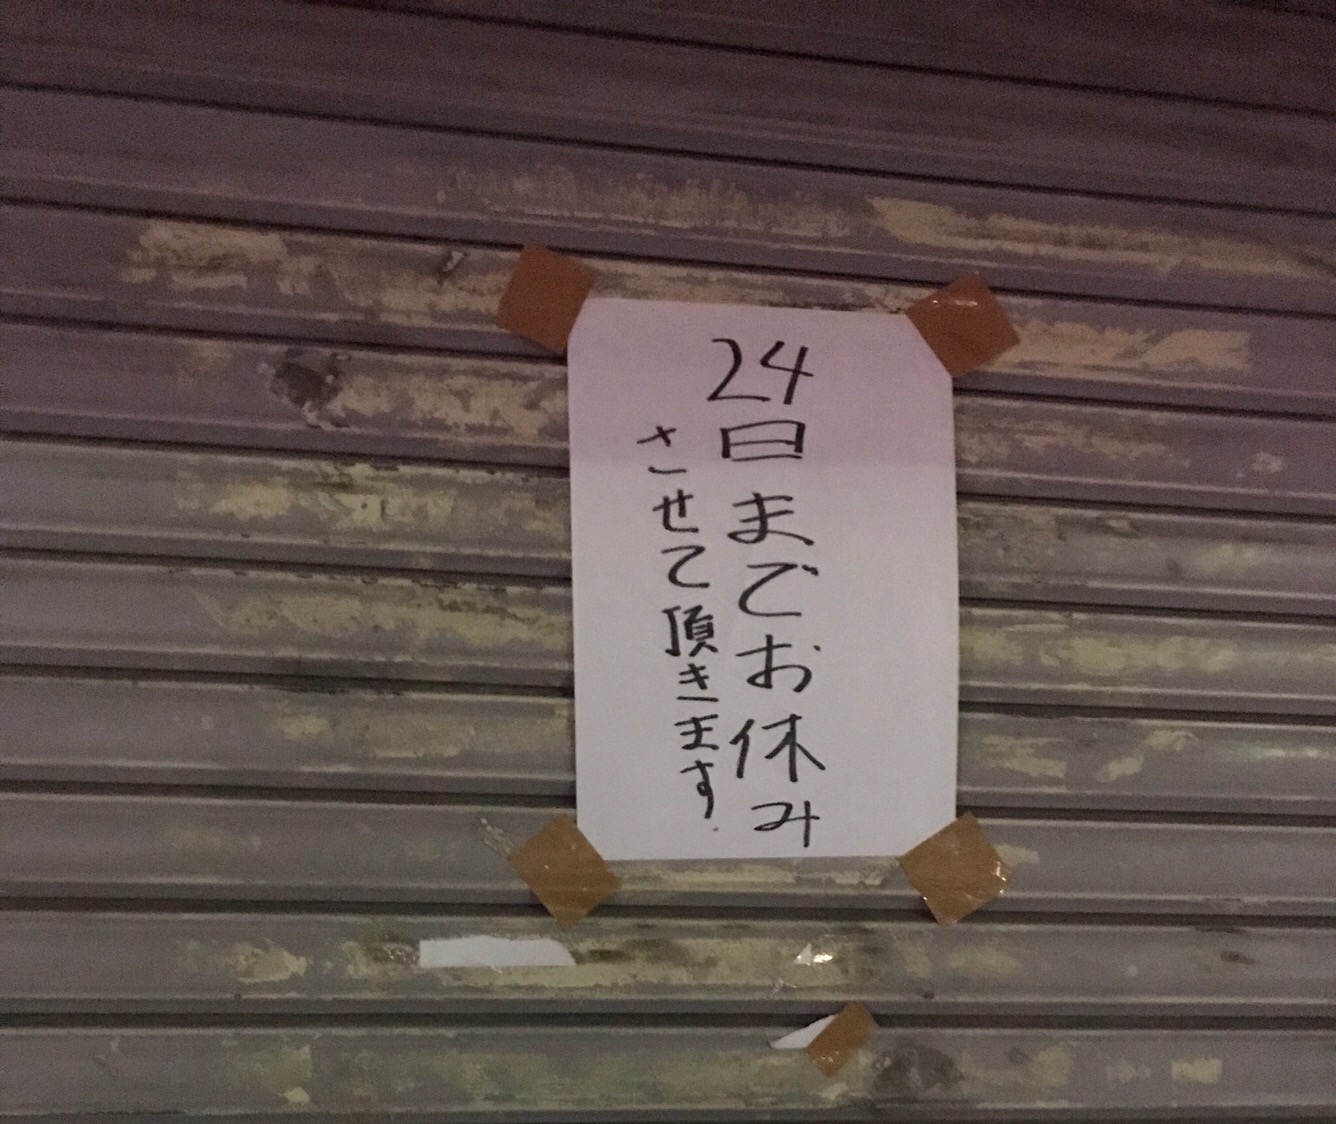 24日までお休み
させて頂きます.